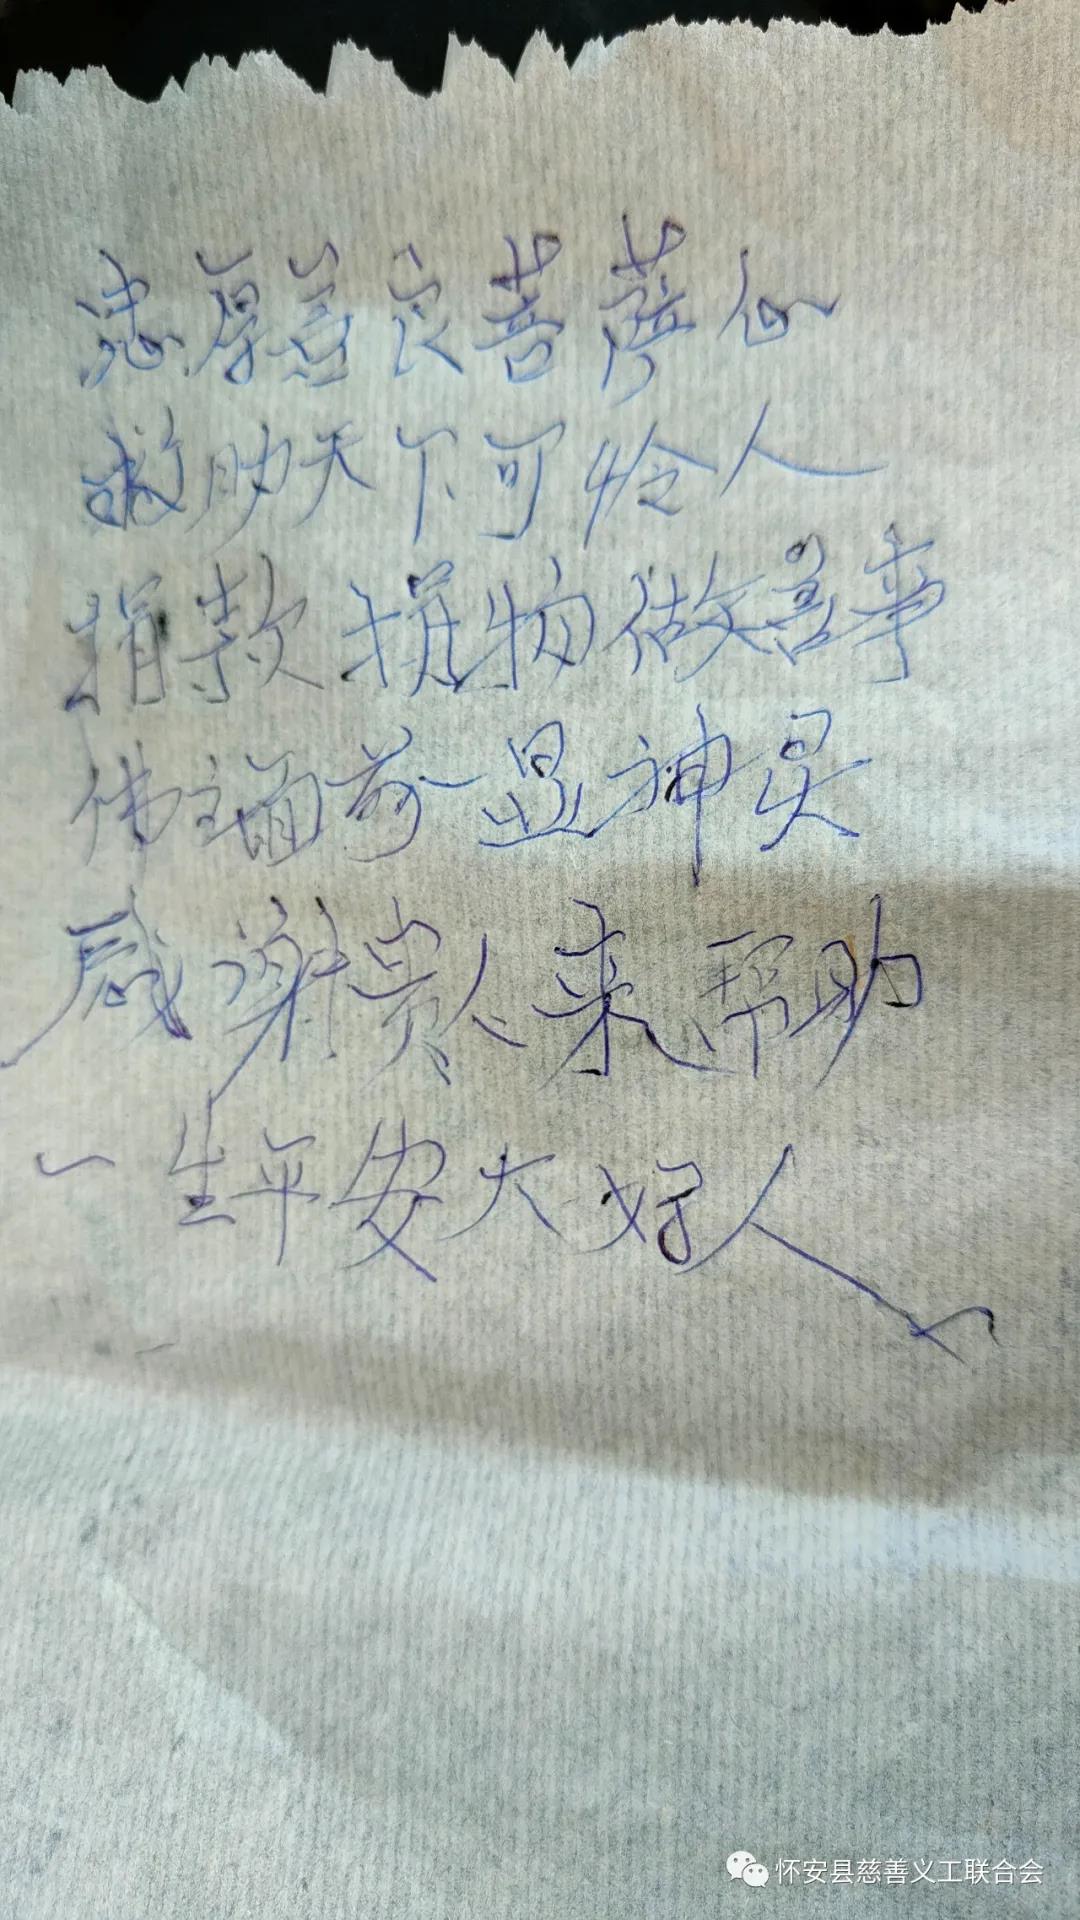 忠厚善良菩萨心
救助天下可怜人
捐款捐物做善事
佛主面前显神灵
感谢贵人来帮助
一生平安大好人
怀安县慈善义工联合会